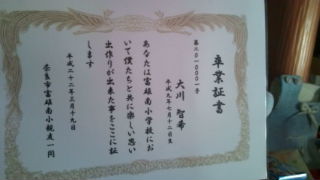 卒業証書
第三〇一〇〇〇一号
大川 智希
平成九年七月十二日生
あなたは富雄南小学校にお
いて僕たちと共に楽しい思い
出作りが出来た事をここに証
します
平成二十二年三月十九日
奈良市富雄南小親友一同